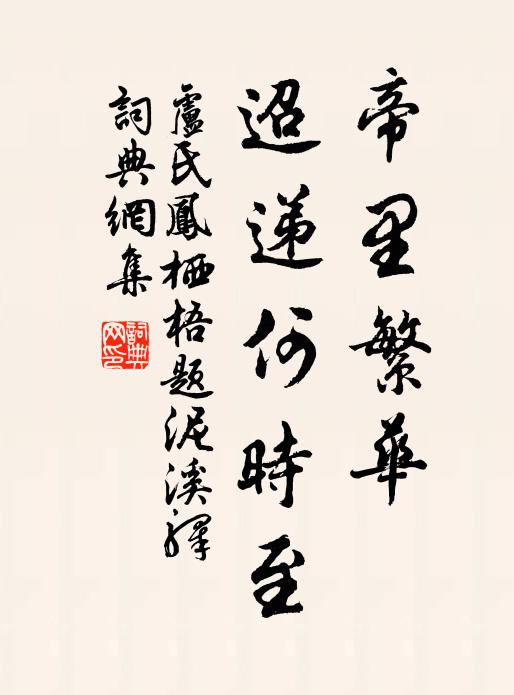 帝里繁華
迢遞何時至
盧氏鳳栖梧題泥溪驛
詞典網集
詞典網印